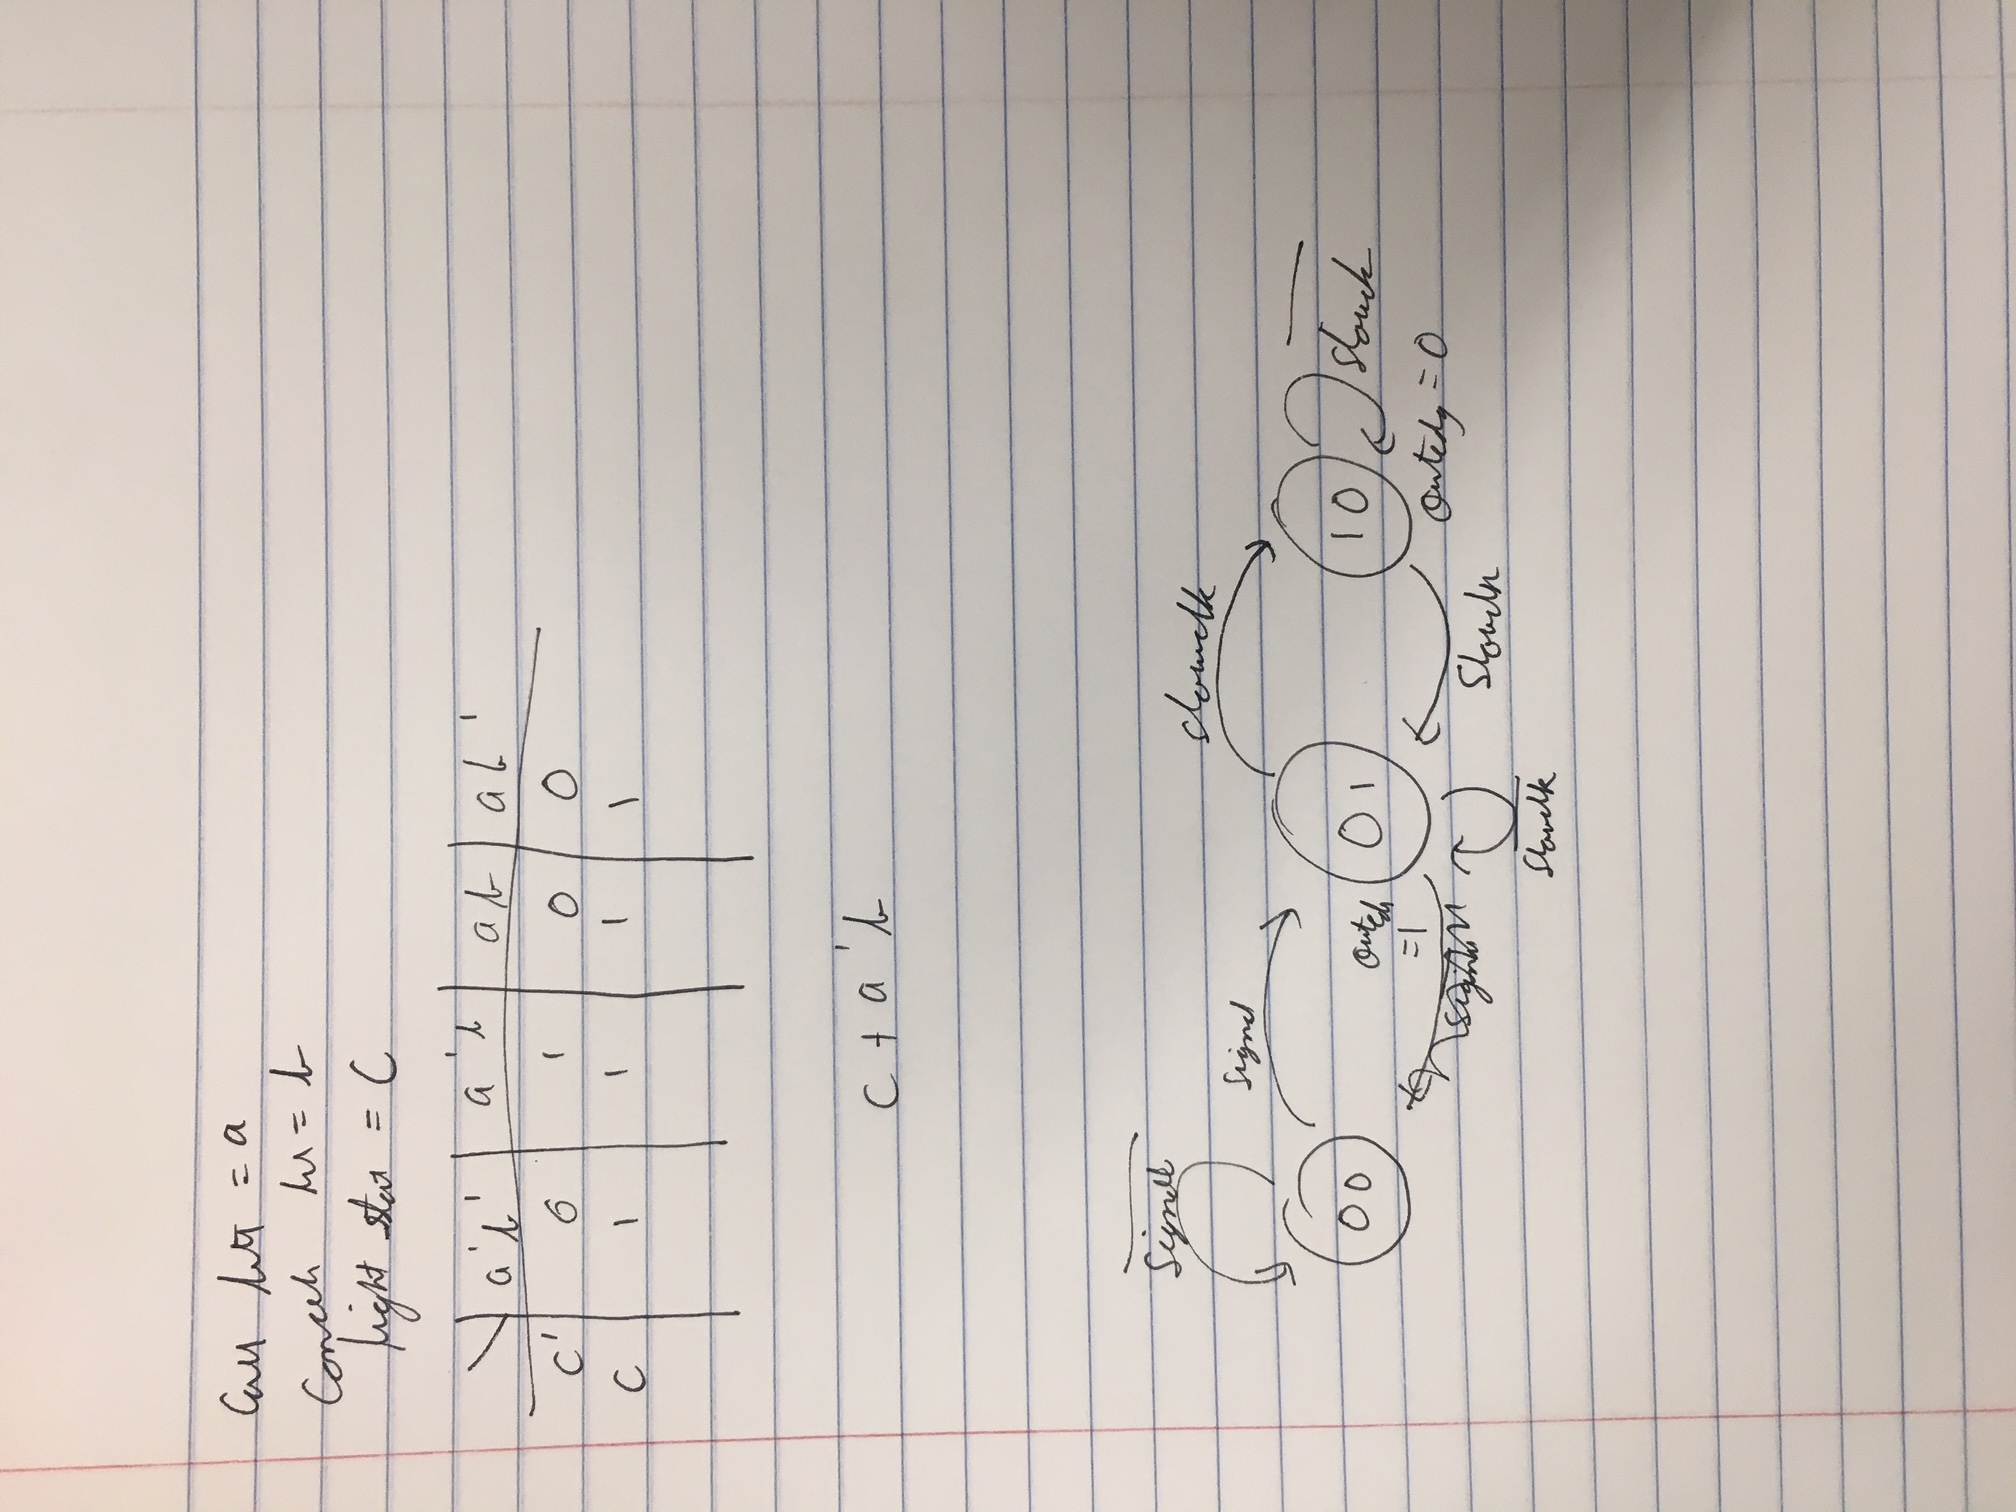 Call btt = a
Cancel btt = b
light stat = C
a'b' a'b ab ab'
C' 0 1 0 0
C 1 1 1 1
C + a'b
Signal
Signal
slowclk
00
01
10
Slowclk
outedg
=1
outedg = 0
Signal
Slowclk
Slowclk